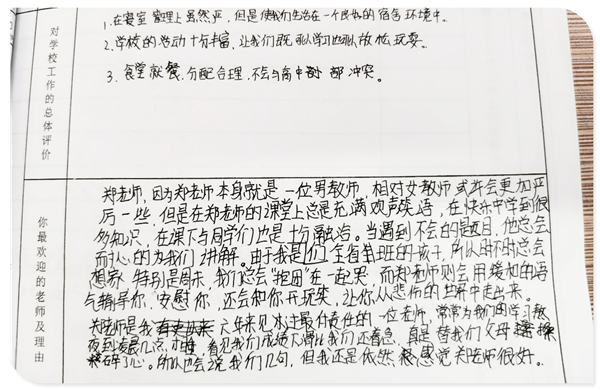 对学校工作的总体评价
1.在寝室管理上虽然严，但是使我们生活在一个良好的宿舍环境中。
2.学校的活动十分丰富，让我们既可以学习也可以放松玩耍。
3.食堂就餐分配合理，不会与高中部冲突。
你最欢迎的老师及理由
郑老师，因为郑老师本身就是一位男教师，相对女教师或许会更加严
厉一些，但是在郑老师的课堂上总是充满欢声笑语，在快乐中学到很
多知识，在课下与同学们也是十分融洽。当遇到不会的题目，他总会
耐心的为我们讲解。由于我是们全省班的孩子，所以时不时总会
想家，特别是周末，我们总会“抱团”在一起哭，而郑老师则会用缓和的语
气辅导你，安慰你，还会和你开玩笑，让你从悲伤的世界中走出来。
郑老师是我六年来见过最付责任的一位老师，常常为我们的学习熬
夜到凌晨几点，看见我们成绩不滑比我们还着急，真是替我们父母操
碎了心。所以也会说我们几句，但我还是依然感觉郑老师很好。